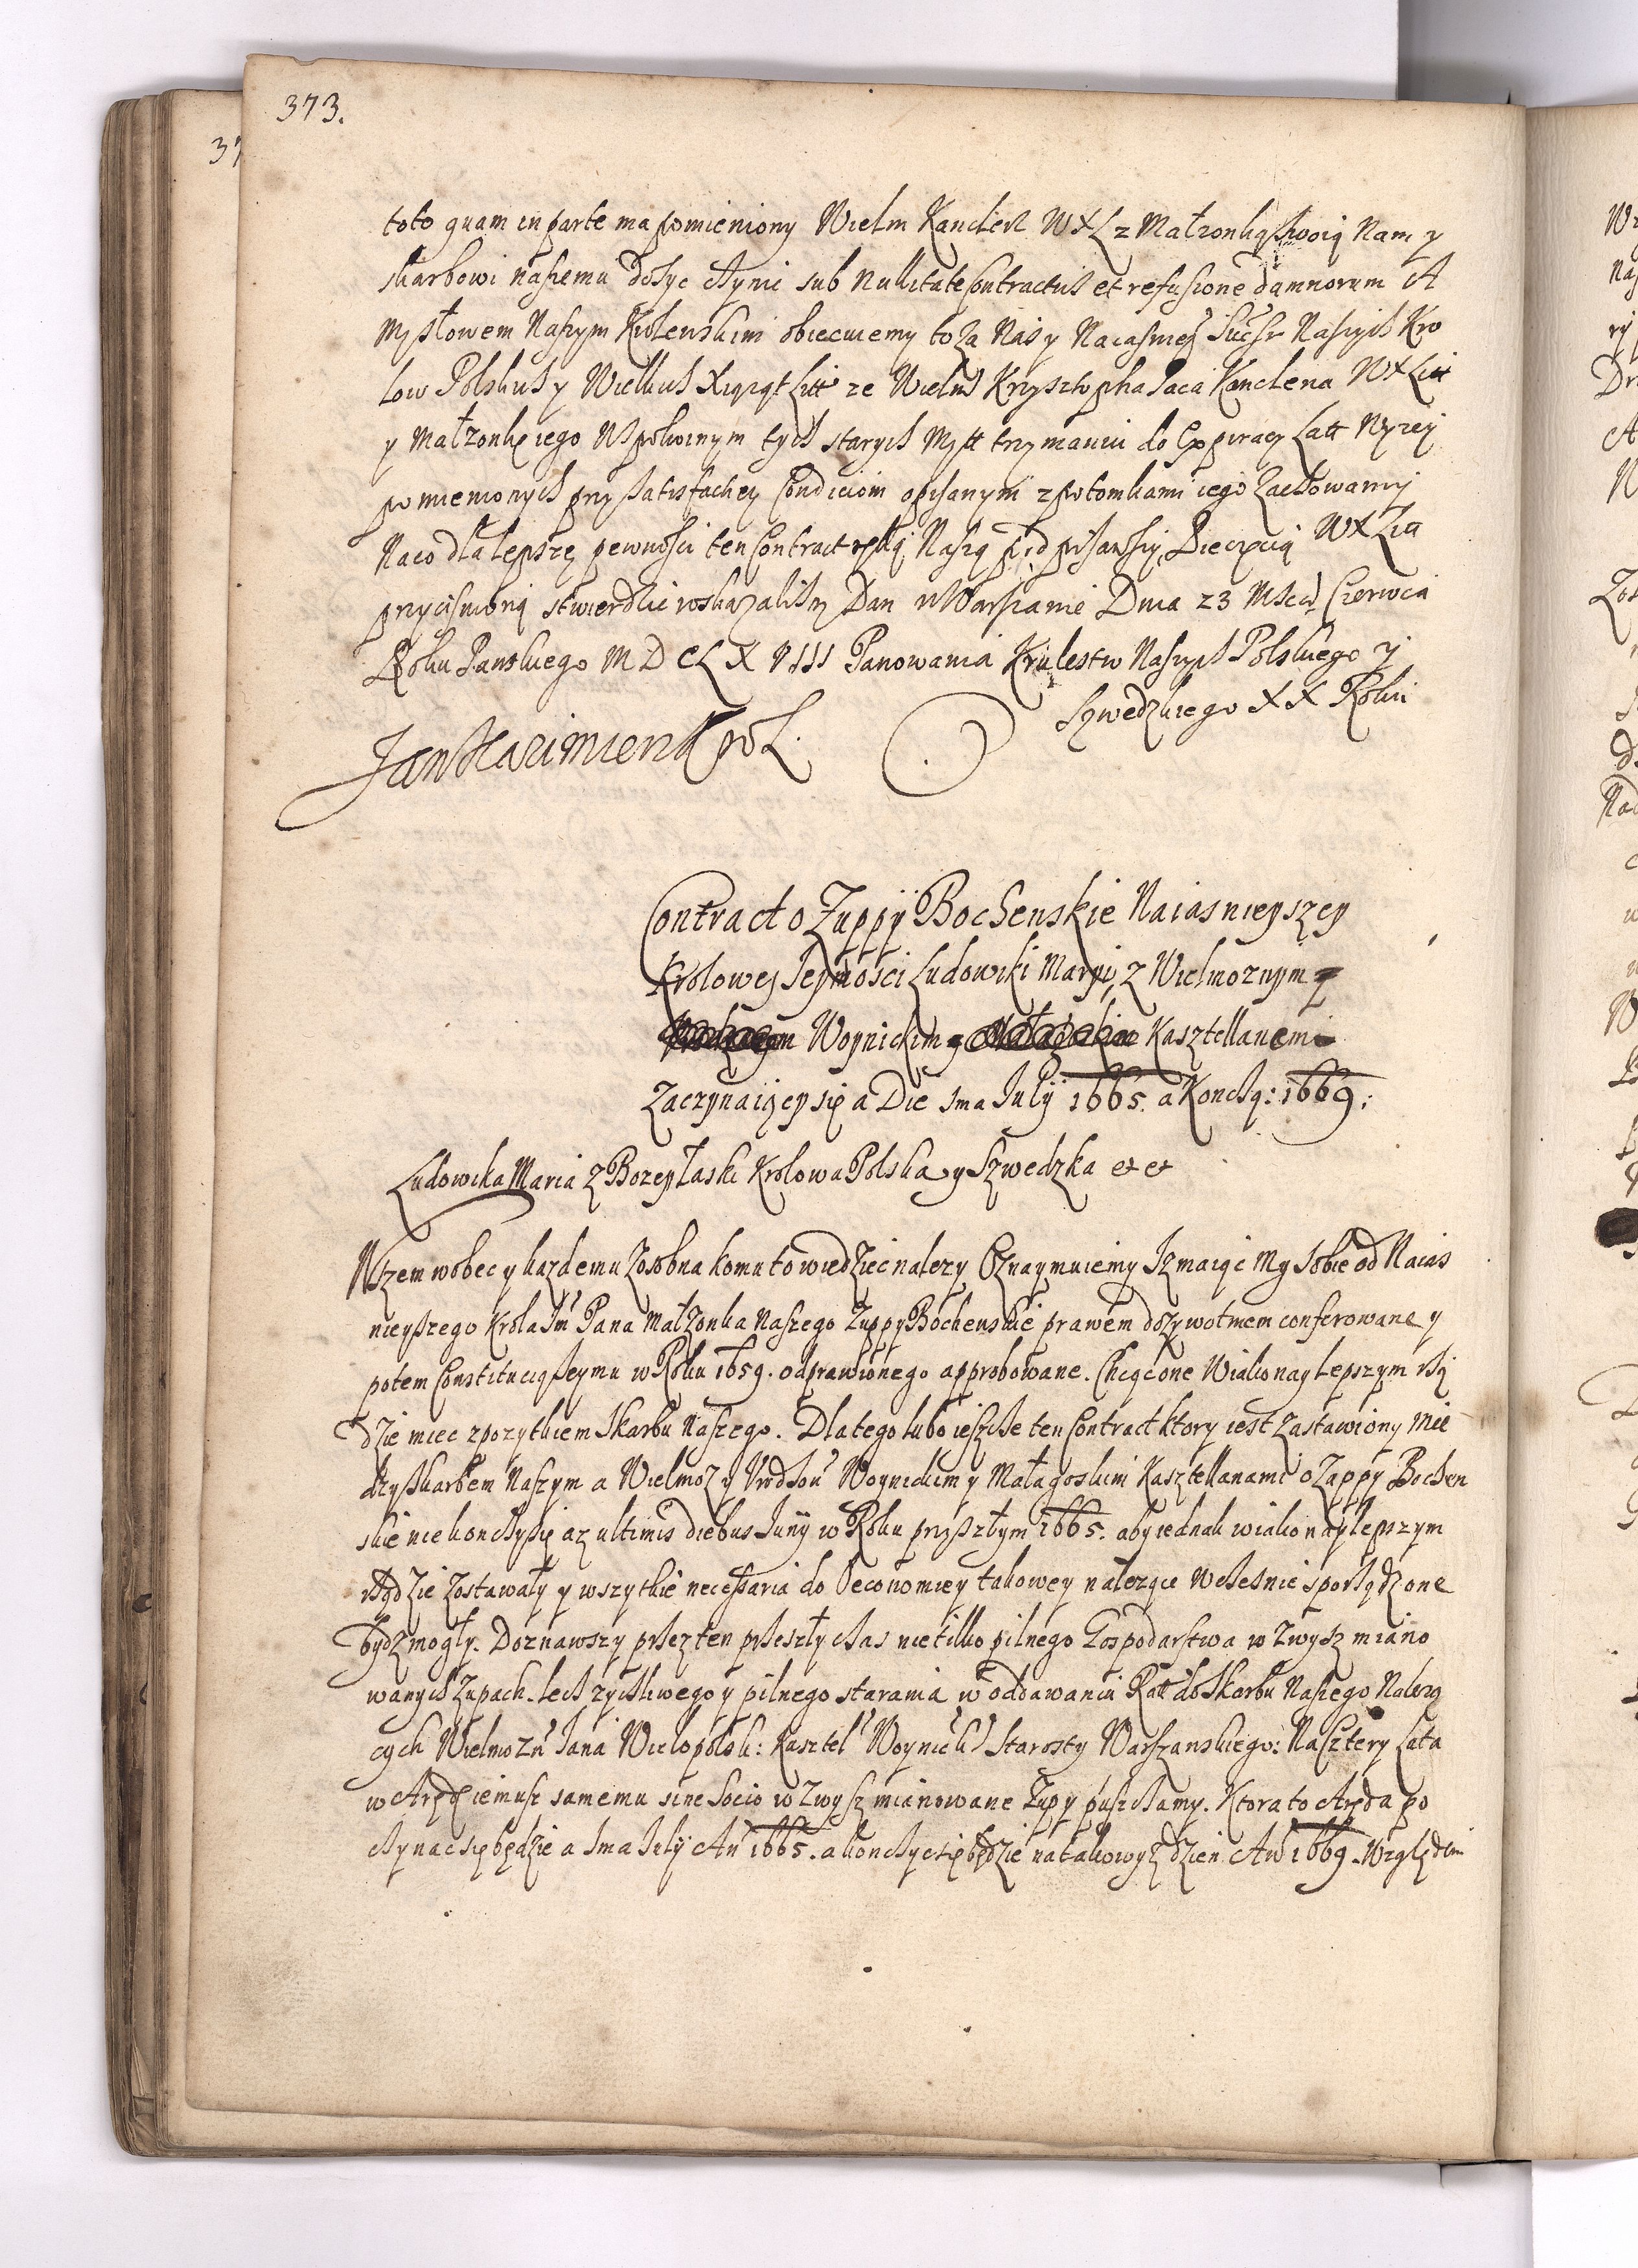 373.
toto quam in parte ma pomieniony Wielm Kanclerz WXL z Małzonką swoią Nam y
skarbowi naszemu dosyc czyni sub Nullitate Contractus et refusione damnorum A
My słowem Naszym Krolewskim obiecuiemy to za Nas y Naiasnieyszych Nastcow Naszych Kro
low Polskich y Wielkich Xiąząt Litt ze Wielmo Krzysztopha Paca Kanclerza WXLitt
y Małzonkę iego W spokoinym tych starych Mytt trzymaniu do Expiracy Latt Wyzey
pomienionych przy satisfactiey Condiciom opisanym z potomkami iego Zachowamy
Na co dla lepszey pewnosci ten Contract ręką Naszą podpisawszy, Pieczęcią WXLitt
przycisnioną stwierdzic roskazalismy Dan w Warszawie Dnia 23 Msca Czerwca
Roku Panskiego MDCLXVIII Panowania Krulestw Naszych Polskiego y
Szwedzkiego XX Roku
Jan Kazimierz Krol.
Contract o Zuppÿ Bochenskie Naiasnieyszey
Krolowej Jeymosci Ludowiki Maryi, z Wielmoznym
Woynickim Kasztellanem
Zaczynaiącey się a Die 1ma Julÿ 1665. a Koncsą: 1669:
Ludowika Maria z Bozey Łaski Krolowa Polska y Szwedzka et et
Wszem wobec y kazdemu zosobna komu to wiedziec nalezy Oznaymuiemy Jz maiąc My sobie od Naias
nieyszego Krola Jm Pana Małzonka Naszego Zuppy Bochenskie prawem dozywotniem conferowane y
potem Constitucią Seymu w Roku 1659. odprawionego approbowane. Chcąc one W iako naylepszym rzą
dzie miec z pozytkiem Skarbu Naszego. Dlatego lubo ieszcze ten Contract ktory iest zastawiony mie
dzy Skarbem Naszym a Wielmoz y Vrodzon Woynickim y Małagoskim Kasztellanami o Zuppy Bochen
skie nie konczy się az ultimis diebus Junÿ w Roku przyszłym 1665. aby iednak w iako naylepszym
rządzie zostawały y wszytkie necessaria do Oeconomiey takowey nalezące wczesnie sporządzone
bydz mogły. Doznawszy przez ten przeszły czas nie tilko pilnego Gospodarstwa w zwysz miano
wanych Zupach. lecz zyczliwego y pilnego starania w oddawaniu Ratt do Skarbu Naszego Nalezą
cych Wielmozn Jana Wielopolsk: Kasztel Woynick Starosty Warszawskiego: Na Cztery Lata
w Arędę iemusz samemu sine Socio w zwysz mianowane Zupy puszczamy. Ktora to Aręda po
czynac się będzie a 1ma Julÿ An 1665. a konczyc się będzie na takowyz dzien An 1669. Względem